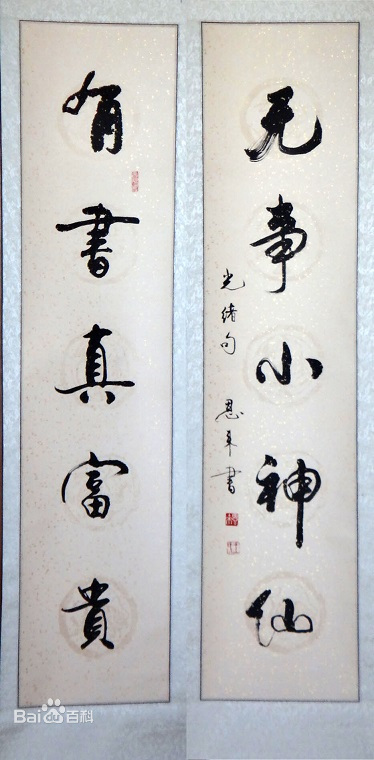 有書真富貴
无事小神仙
光緒句
恩 書
Bai百科